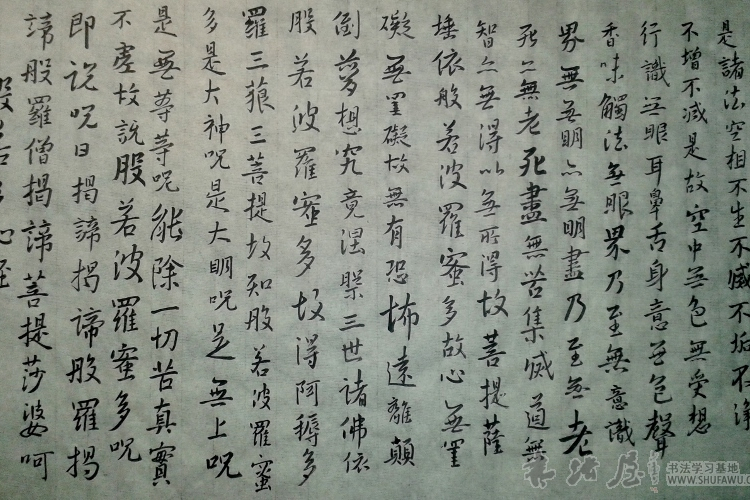 是諸法空相不生不滅不垢不淨
不增不減是故空中無色無受想
行識無眼耳鼻舌身意無色聲
香味觸法無眼界乃至無意識
界無無明亦無無明盡乃至無老
死亦無老死盡無苦集滅道無
智亦無得以無所得故菩提薩
埵依般若波羅蜜多故心無罣
礙無罣礙故無有恐怖遠離顛
倒夢想究竟涅槃三世諸佛依
般若波羅蜜多故得阿耨多
羅三藐三菩提故知般若波羅蜜
多是大神呪是大明呪是無上呪
是無等等呪能除一切苦真實
不虛故說般若波羅蜜多呪
即說呪曰揭諦揭諦般羅揭
諦般羅僧揭諦菩提莎婆呵
书法学习基地
WWW.SHUFAWU.COM